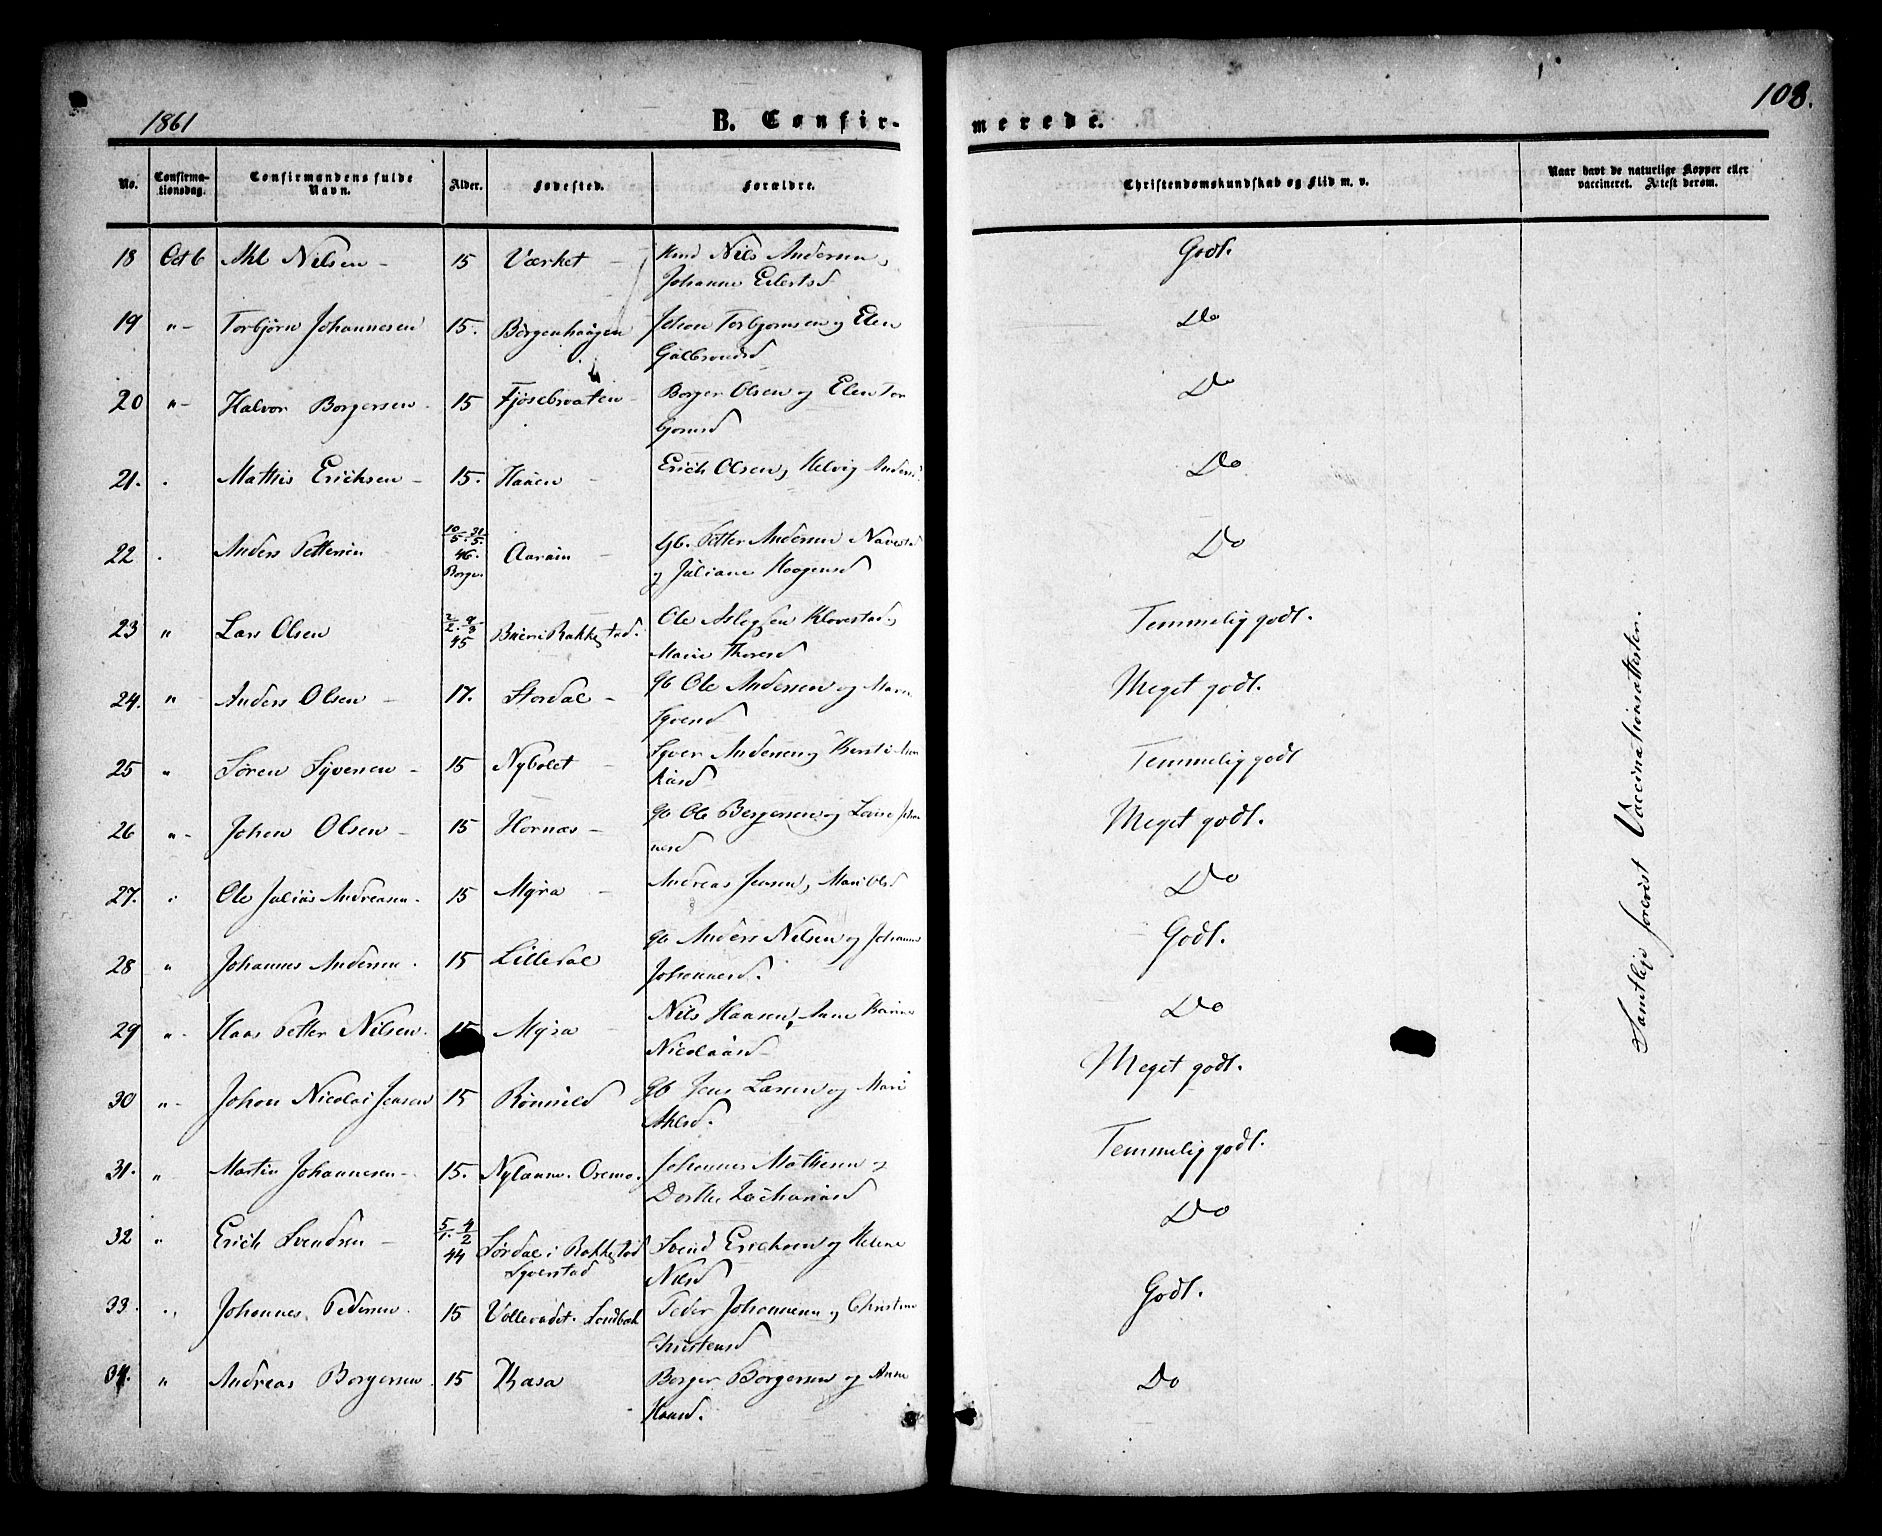 1861
B. Confirmerede.
108.
No.
Confirmationsdag.
Confirmandens fulde Navn.
Alder.
Fødested.
Forældre.
Christendomskundskab og Flid m. v.
Naar havt de naturlige Kopper eller vaccineret. Attest derom.
18 Oct 6 Nilsen - 15 Værket - Nils Andersen Godt.
Johanne Eilertsd
19 "- Torbjørn Johannesen 15. Johan Torbjørnsen og Elen Do
Gulbrandsd
20 "- Halvor Borgersen - 15 Fjøsebraaten - Borger Olsen og Elen Tor Do
bjørnsd
21. . Mathis Erichsen - 15. Haaen - Erich Olsen, Helvig Anders Do
22 . Anders Pettersen 10/5. 31/5. 46. Borge. Gb. Petter Andersen Do
og Juliane Haagensd
23 " Lars Olsen 2/2. 9/3 45 Rakkestad. Ole Temmelig godt.
Marie
24. " - Anders Olsen - 17. Stordal - gb Ole Andersen og Maren Meget godt.
25 " Søren Syversen - 15 Nybølet - Syver Andersen og Temmelig godt
26 "- Johan Olsen - 15 Hornæs - gb Ole Borgersen og Meget godt.
27. Ole Julius Andreasen. 15 Myra - Andreas Jensen, Mari Olsd Do
28 " Johannes Andersen. 15 Lilledal gb Anders Nilsen og Johanne Godt.
Johannesd.
29 "- Hans Petter Nilsen. 15 Myra - Nils Hansen, Anne Karine Do
Nicolaisd -
30 "- Johan Nicolai Jensen 15 gb Jens Larsen og Mari Meget godt.
31. " Martin Johannesen - 15. Johannes Mathisen og Temmelig godt.
Dorthe Zachariasd
32 " Erich Svendsen - 5/1. 4/2 44 Sørdal i Rakkestad Svend Erichsen og Helene Do
Syverstad Nilsd
33. Johannes Pedersen. 15 Peder Johannesen og Christine Godt.
Christensd
34. " Andreas Borgersen. 15 Kasa Borger Borgersen og Anne Do
Hansd.
Samtlige forevist Vaccinationsattester.